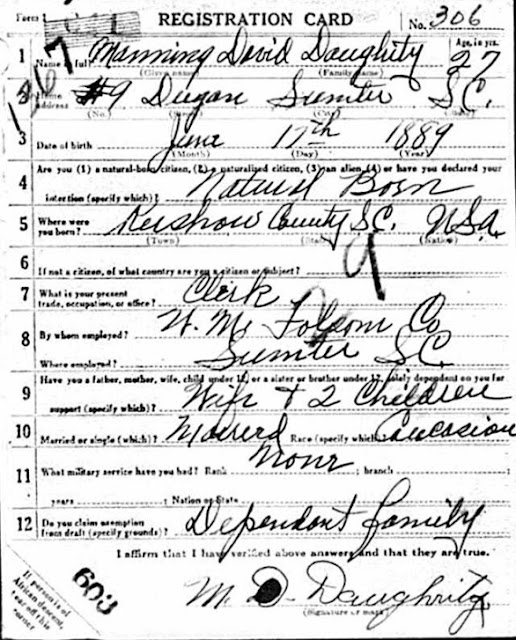 Form 1 REGISTRATION CARD No. 306
1317
1 Name in full Manning David Daughity Age, in yrs. 27
(Given name) (Family name)
2 Home address #9 Dugan Sumter S.C.
(No.) (Street) (City) (State)
3 Date of birth June 17th 1889
(Month) (Day) (Year)
4 Are you (1) a natural-born citizen, (2) a naturalized citizen, (3) an alien, (4) or have you declared your
intention (specify which)? Natural Born
5 Where were you born? Kershaw County S.C. U.S.A.
(Town) (State) (Nation)
6 If not a citizen, of what country are you a citizen or subject?
7 What is your present trade, occupation, or office? Clerk
8 By whom employed? W. M. Folsom Co
Where employed? Sumter S.C.
9 Have you a father, mother, wife, child under 12, or a sister or brother under 12, solely dependent on you for
support (specify which)? Wife + 2 Children
10 Married or single (which)? Married Race (specify which)? Caucasion
11 What military service have you had? Rank None ; branch
years ; Nation or State
12 Do you claim exemption from draft (specify grounds)? Dependant family
I affirm that I have verified above answers and that they are true.
M. D. Daughrity
(Signature or mark)
If person is of African descent, tear off this corner
603